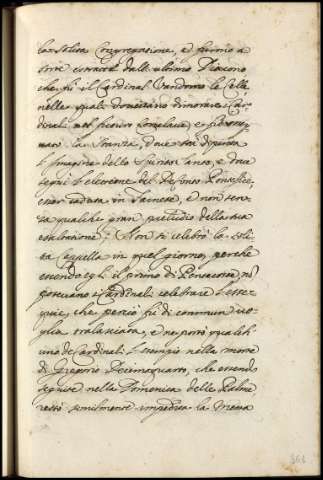 la solita Congregatione, e furono a
sorte estratte dall'ultimo Diacono
che fù il Cardinal Vandomo le Celle,
nelle quali dovevano dimorare i Car-
dinali nel futuro Conclave, e fù osser-
uato la Stanza, doue stà dipinta
l'Imagine dello Spirito Santo, e doue
seguì l'elettione del Defonto Pontefice,
esser caduta in Farnese, e non sen-
za qualche gran preludio della sua
esaltatione. Non si celebrò la soli-
ta Cappella in quel giorno, perche
essendo egli il primo di Pentecoste nõ
poteuano i Cardinali celebrare l'esse-
quie, che perciò fù di commun vo-
glia tralasciata, e ne portò qualch'
uno de Cardinali l'essempio nella morte
di Gregorio Decimoquarto, che essendo
seguita nella Domenica delle Palme,
restò similmente impedita la Messa